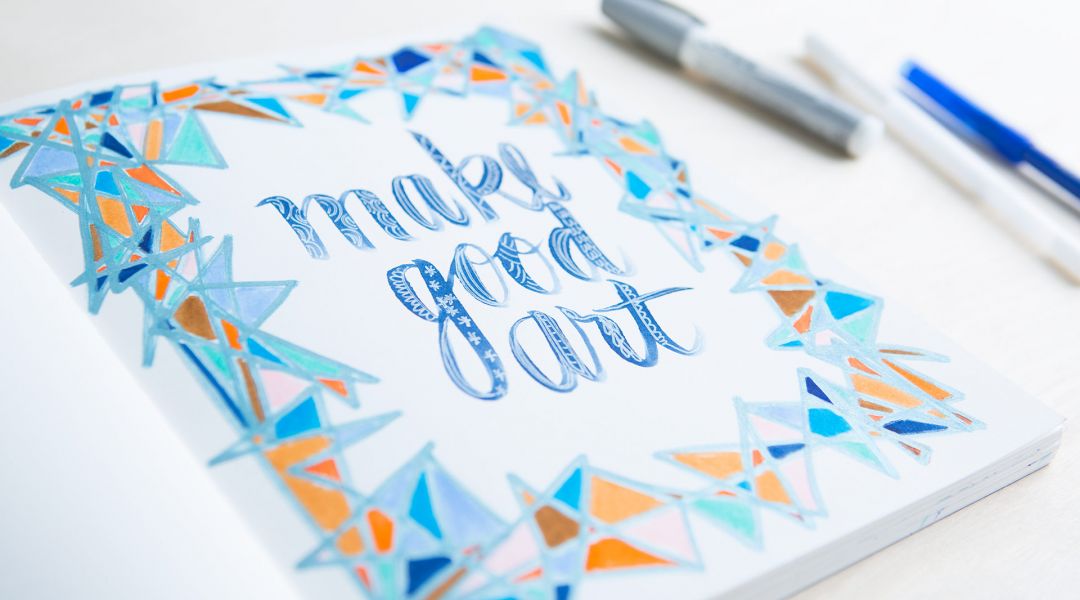 make
good
art